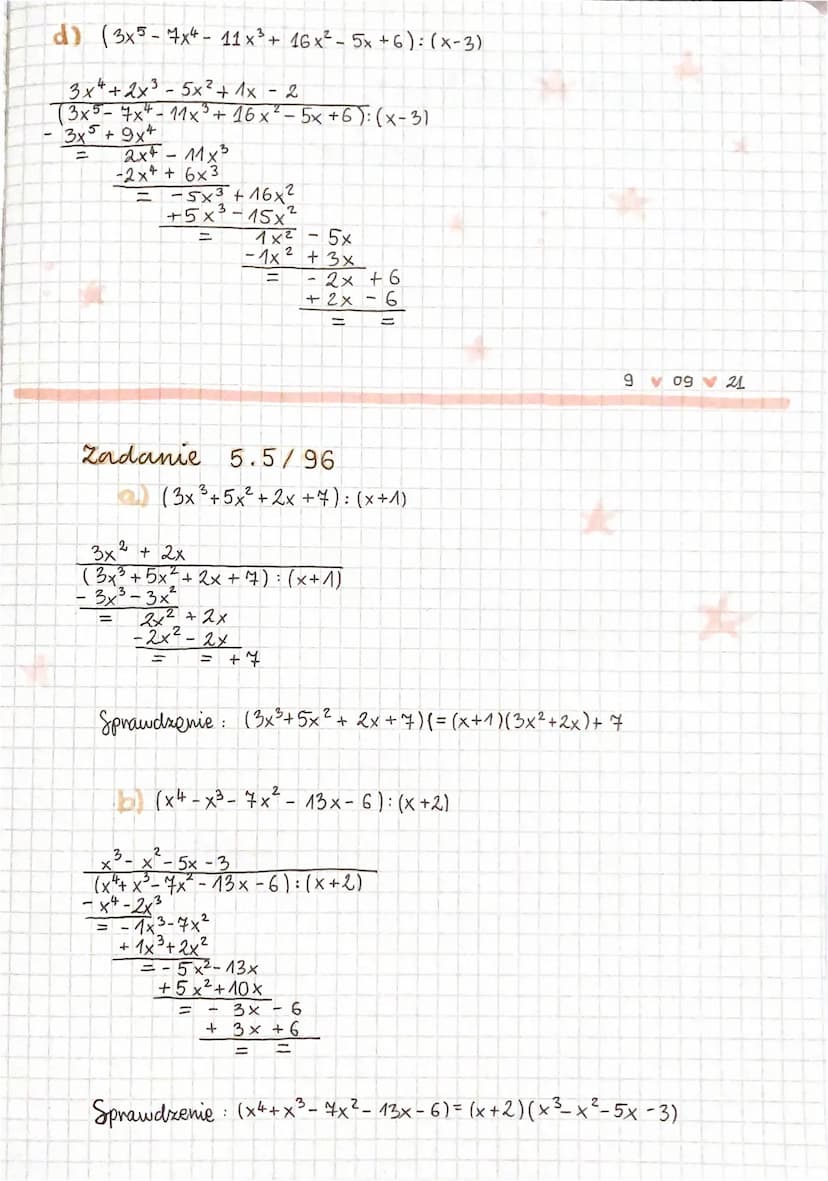 d) (3x⁵ - 7x⁴ - 11x³ + 16x² - 5x + 6) : (x-3)
3x⁴ + 2x³ - 5x² + 1x - 2
(3x⁵ - 7x⁴ - 11x³ + 16x² - 5x + 6) : (x-3)
- 3x⁵ + 9x⁴
= 2x⁴ - 11x³
-2x⁴ + 6x³
= -5x³ + 16x²
+5x³ - 15x²
= 1x² - 5x
-1x² + 3x
= - 2x + 6
+ 2x - 6
= =
9 ♥ 09 ♥ 21
Zadanie 5.5/96
a) (3x³ + 5x² + 2x + 7) : (x+1)
3x² + 2x
(3x³ + 5x² + 2x + 7) : (x+1)
- 3x³ - 3x²
= 2x² + 2x
-2x² - 2x
= = + 7
Sprawdzenie : (3x³+5x² + 2x + 7)(= (x+1)(3x²+2x) + 7
b) (x⁴ - x³ - 7x² - 13x - 6) : (x+2)
x³ - x² - 5x - 3
(x⁴ + x³ - 7x² - 13x - 6) : (x+2)
- x⁴ - 2x³
= - 1x³ - 7x²
+ 1x³ + 2x²
= - 5x² - 13x
+ 5x² + 10x
= - 3x - 6
+ 3x + 6
= =
Sprawdzenie : (x⁴ + x³ - 7x² - 13x - 6) = (x+2)(x³ - x² - 5x - 3)